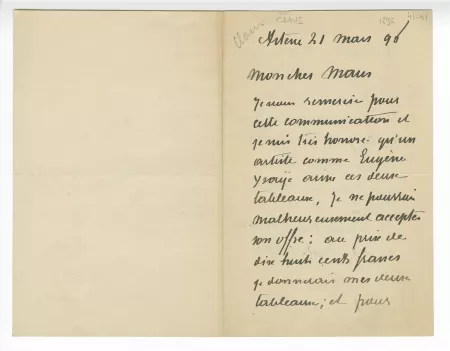 Claus
1890
Astene 21 mars 90
Mon cher Maus
Je vous remercie pour
cette communication et
je suis très honoré qu'un
artiste comme Eugène
Ysaÿe aime ces deux
tableaux, Je ne pourrais
malheureusement accepter
son offre; au prix de
dix huit cents francs
je donnerais mes deux
tableaux; et pour